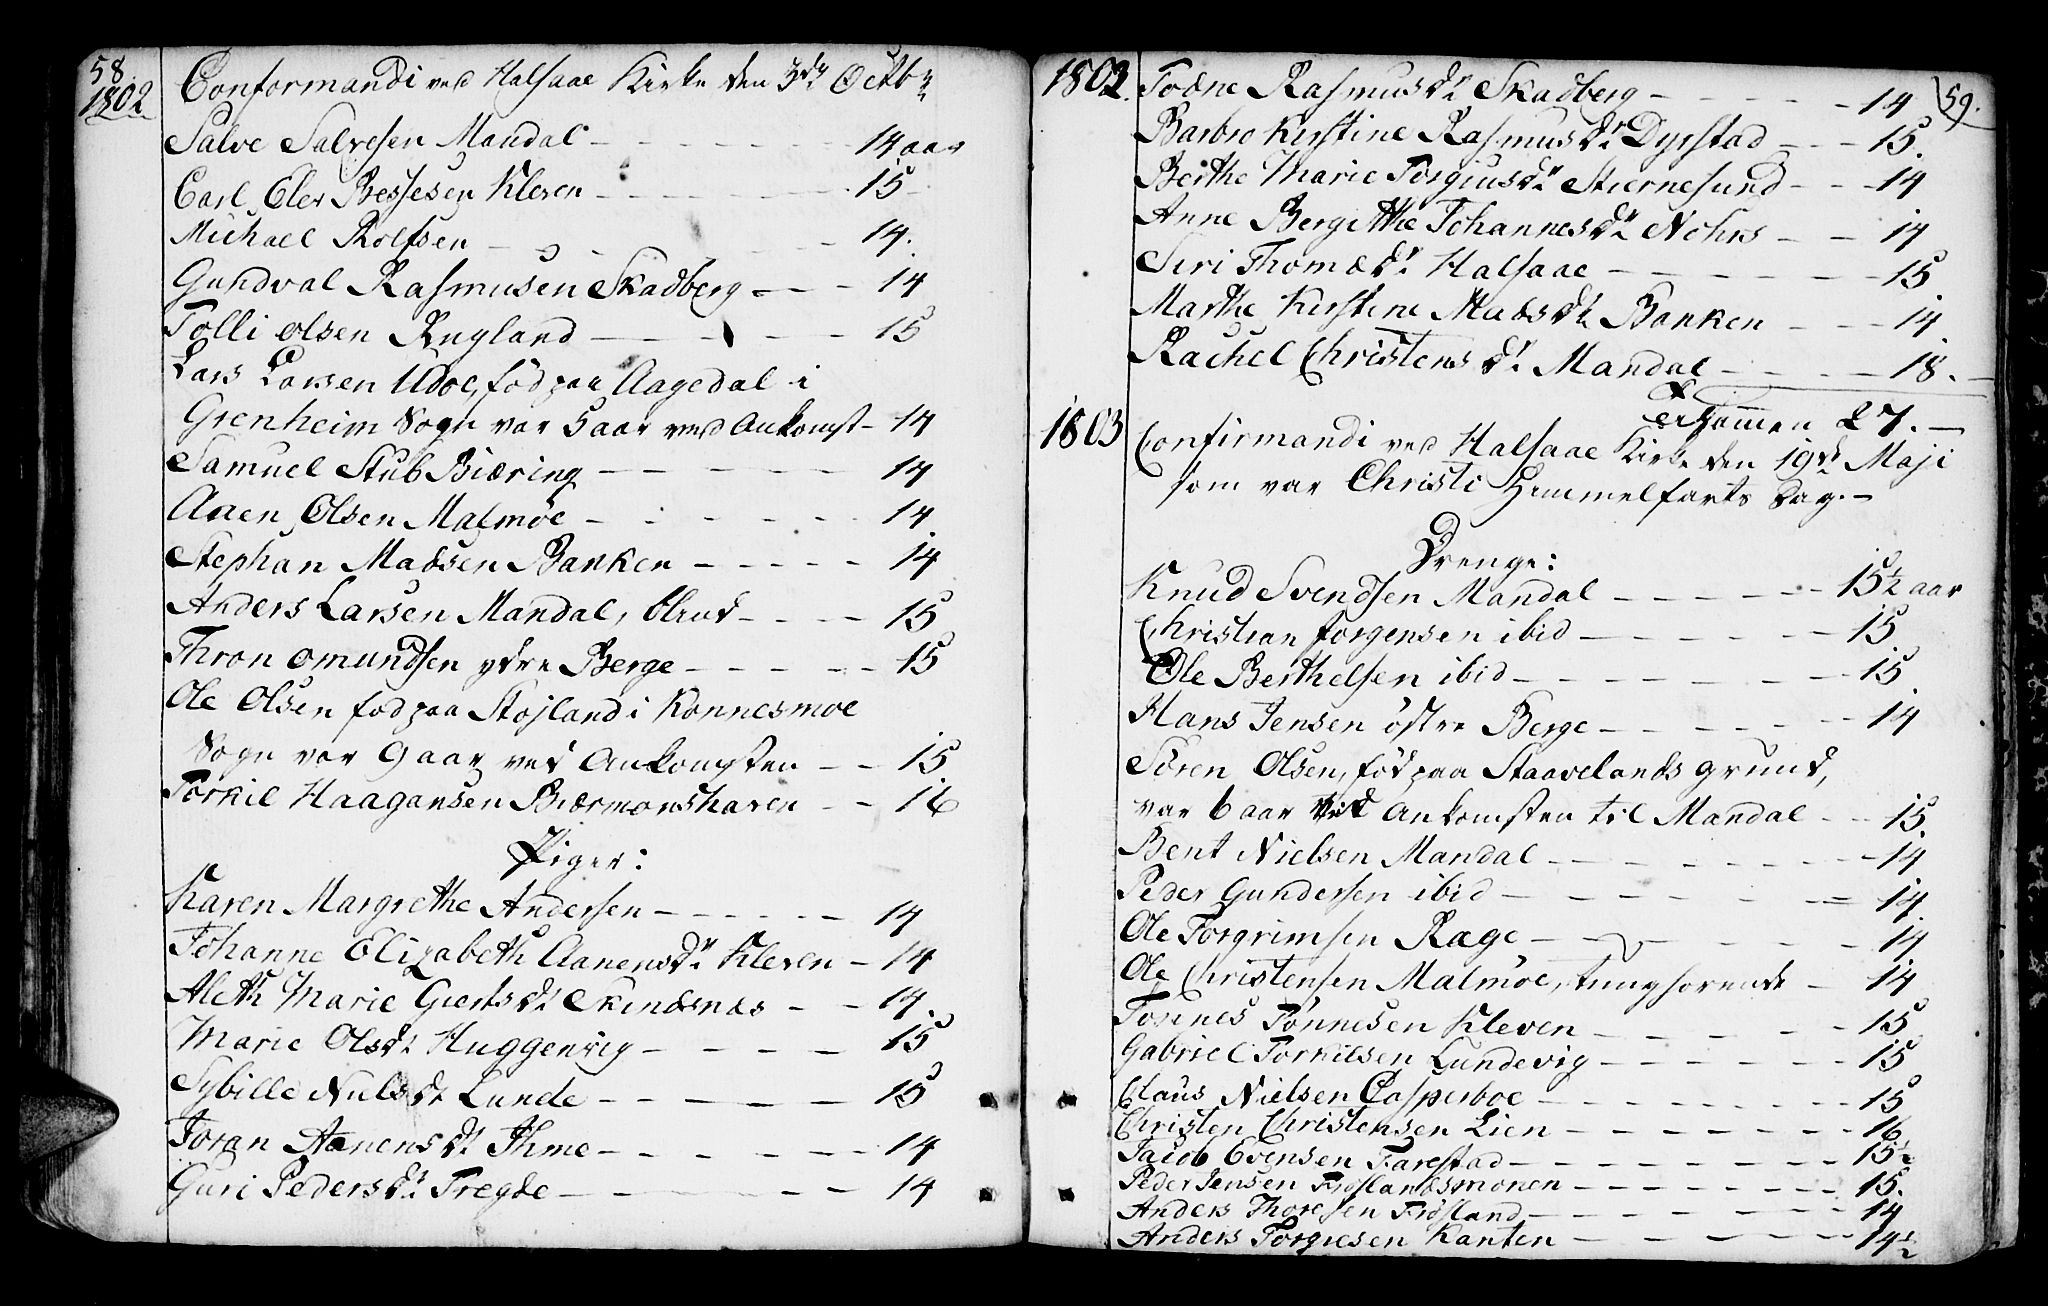 58.
1802
Conformandi ved Halsaae Kirke den 3de Octbr
Salve Salvesen Mandal 14 aar
Carl Eler Bessesen Kleven 15
Michael Rolfsen 14.
Gundval Rasmusen Skadberg 14
Tolli Olsen Rugland 15
Lars Larsen Udoe, fød paa Aagedal i
Grenheim Sogn var 5 aar ved Ankomst 14
Samuel Stub Biæring 14
Anen Olsen Malmöe 14
Stephan Madsen Banken 14
Anders Larsen Mandal, blind 15
Thron Omundsen ydre Berge 15
Ole Olsen fød paa Stojland i Konnesmoe
Sogn var 9 aar ved Ankomsten 15
Torkil Haagansen Biærmonshaven 16
Piger:
Karen Margrethe Andersen 14
Johanne Elizabeth Aanensdr Kleven 14
Aleth Marie Giertsdr Skindsnæs 14.
Marie Olsdr Huggenvig 15
Sybille Nielsdr Lunde 15
Joran Aanensdr Ihme 14
Guri Pedersdr Tregde 14
1802.
59.
Todne Rasmusdr Skadberg 14
Barbro Kirstine Rasmusdr Dyrstad 15.
Berthe Marie Torgiusdr Stiernesund 14
Anne Bergitthe Johannesdr Nohrs 14
Siri Thomædr Halsaae 15
Marthe Kirstine Madsdr Banken 14
Rachel Christensdr Mandal 18.
er sammen 27.
1803
Confirmandi ved Halsaae Kirke den 19de Maji
som var Christi Himmelfarts Dag.
Drenge:
Knud Svendsen Mandal 15½ aar
Christian Jorgensen ibid 15
Ole Berthelsen ibid 15
Hans Jensen östre Berge 14
Sören Olsen, fød paa Staavelands grund,
var 6 aar ved Ankomsten til Mandal 15
Bent Nielsen Mandal 14
Peder Gundersen ibid 14
Ole Torgrimsen Ræge 14
Ole Christensen Malmöe, tunghorende 14
Tönnes Tönnesen Kleven 15
Gabriel Torkilsen Lundevig 15
Claus Nielsen Casperboe 15
Christen Christensen Lien 16
Jacob Evensen Farestad 15½
Peder Jensen Fröslandsmonen 15.
Anders Thoresen Frösland 14
Anders Torgiesen Kanten 14½